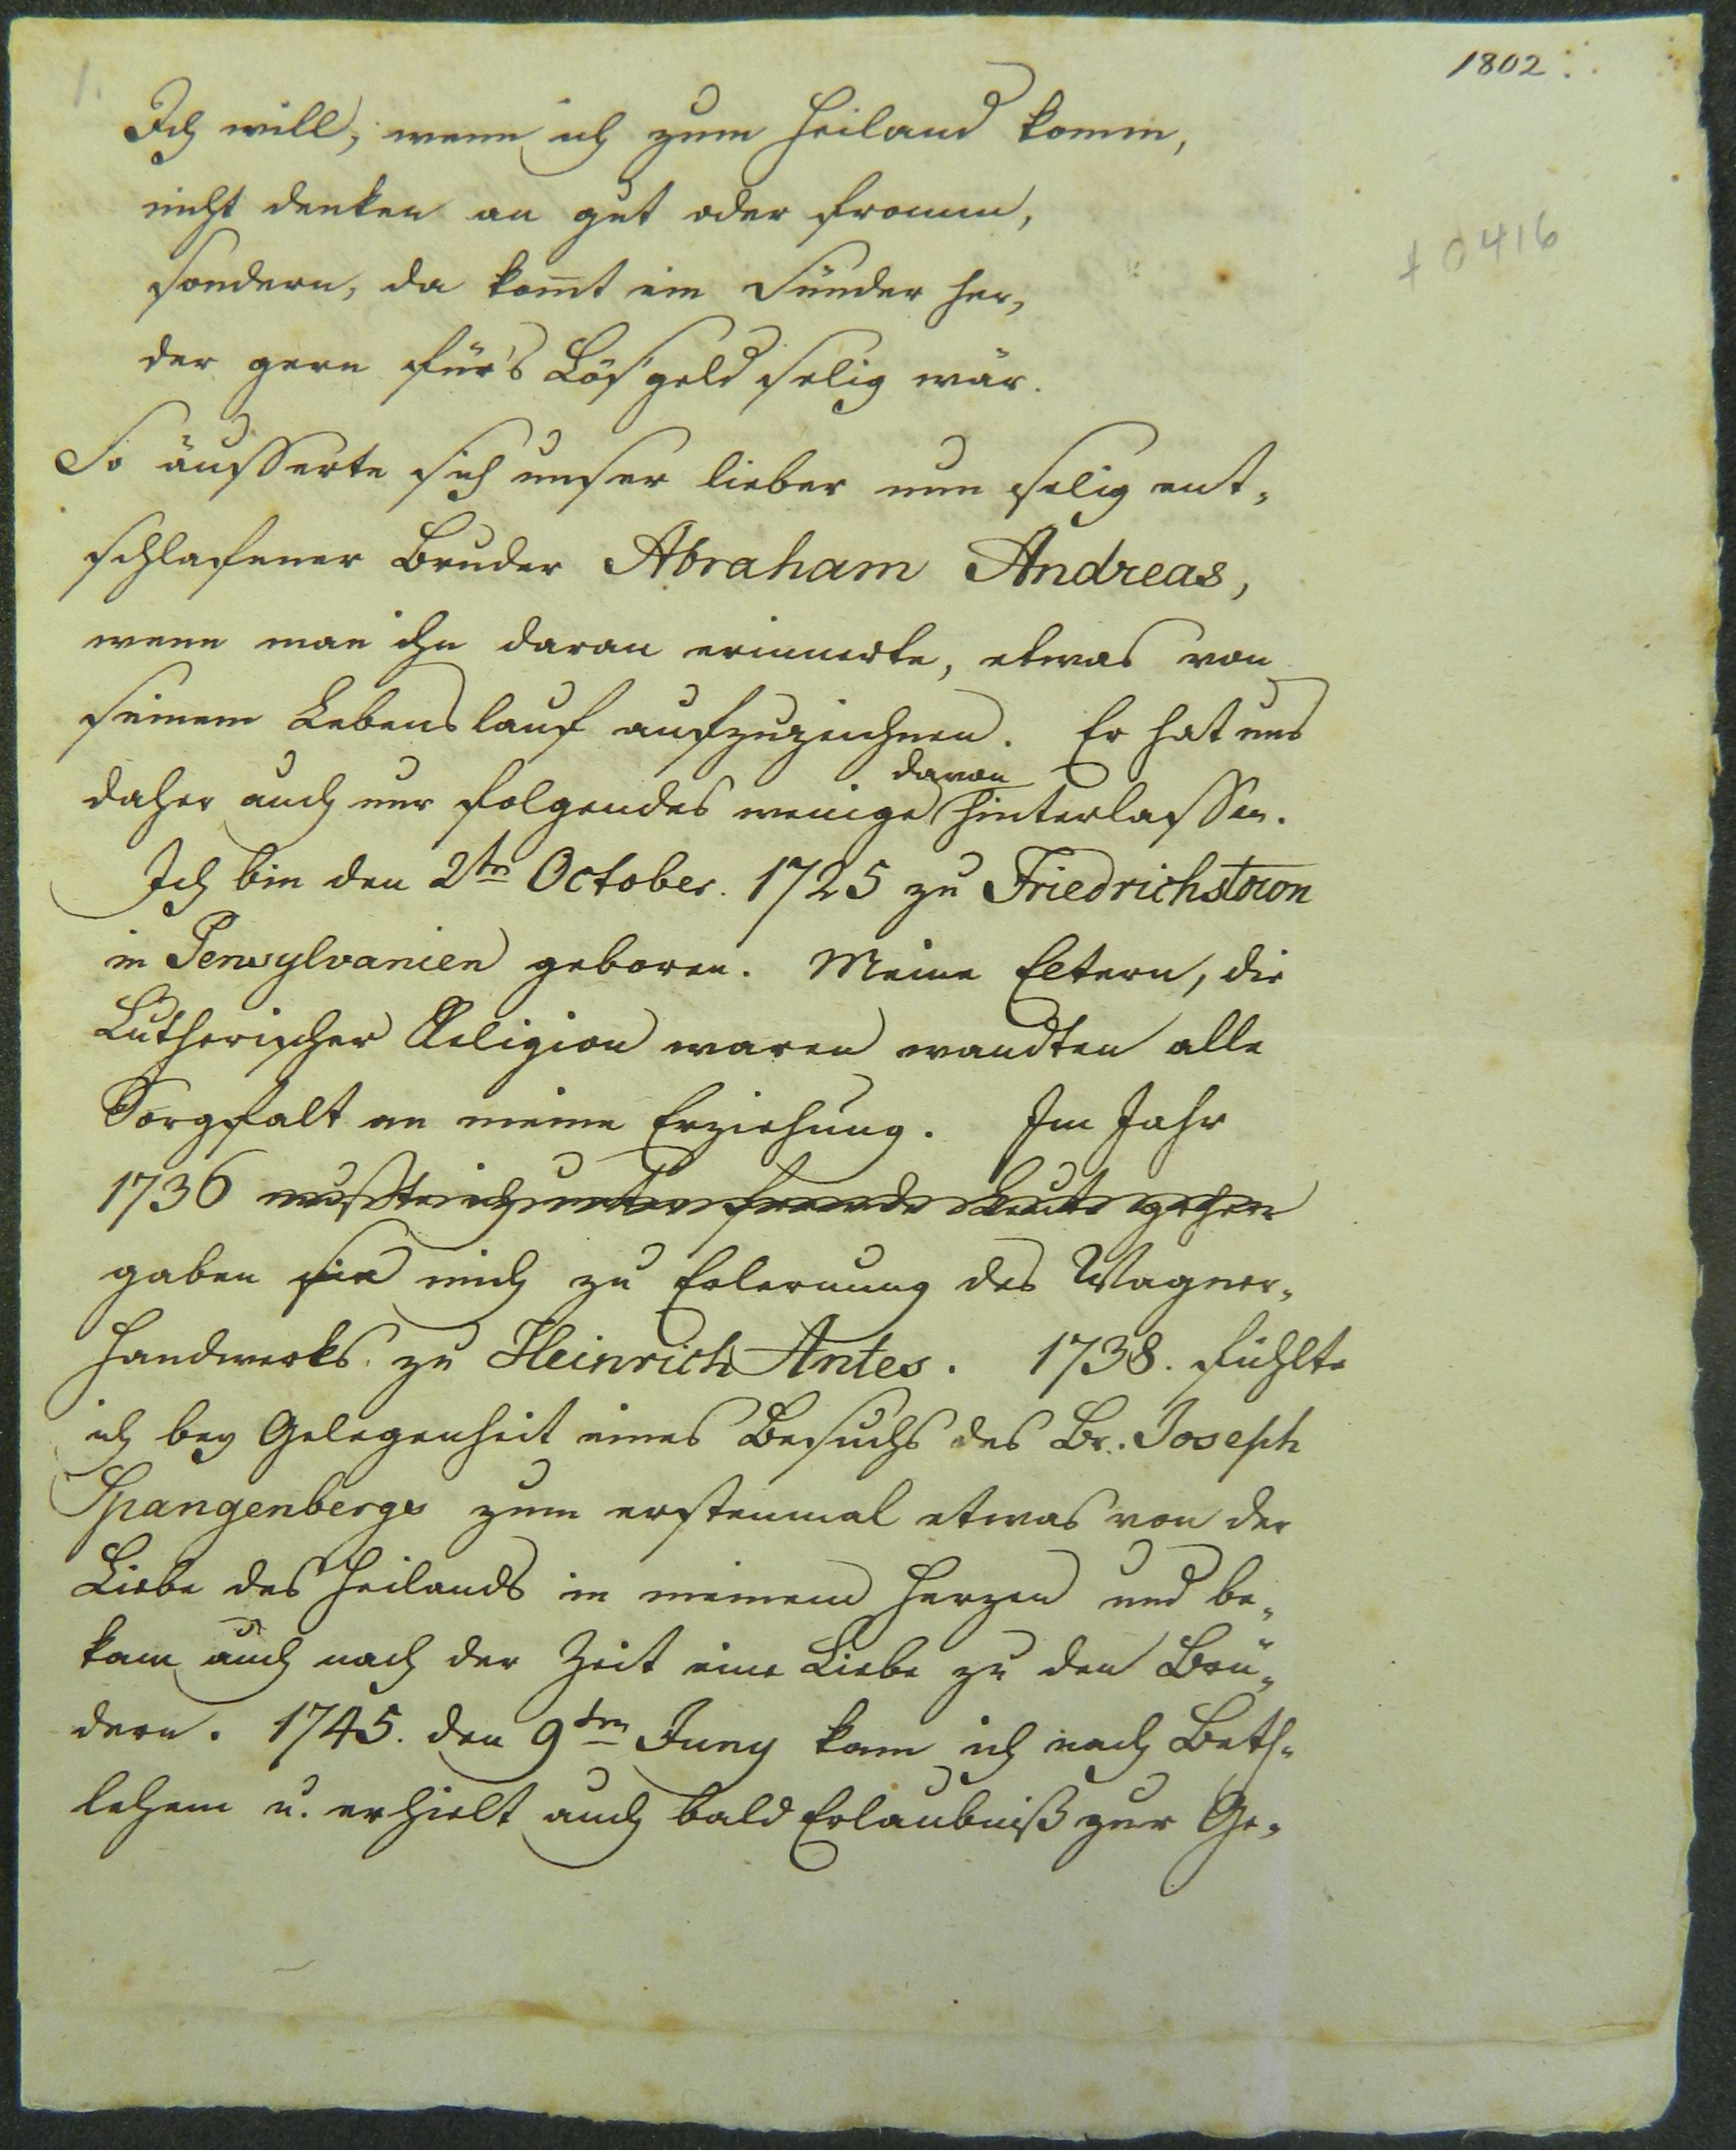 1802.
1.
f 0416
Ich will, wenn ich zum Heiland komm,
nicht denken an gut oder fromm,
sondern, da kom̅t ein Sünder her,
der gern für's Lösgeld selig wär.
So äusserte sich unser lieber nun selig ent-
schlafener Bruder Abraham Andreas,
wenn man ihn daran erinnerte, etwas von
seinem Lebenslauf aufzuzeichnen. Er hat uns
davon
daher auch nur folgendes wenige hinterlassen.
Ich bin den 2ten October. 1725 zu Friedrichstown
in Pensylvanien geboren. Meine Eltern, die
Lutherischer Religion waren wandten alle
Sorgfalt an meine Erziehung. Im Jahr
1736 mußte ich unter fremde Leute gehen
gaben sie mich zu Erlernung des Wagner-
Handwerks. zu Heinrich Antes. 1738. fühlte
ich bey Gelegenheit eines Besuchs des Br. Joseph
Spangenbergs zum erstenmal etwas von der
Liebe des Heilands in meinem Herzen und be-
kam auch nach der Zeit eine Liebe zu den Brü-
dern. 1745. den 9ten Juny kam ich nach Beth-
lehem u. erhielt auch bald Erlaubniß zur Ge-